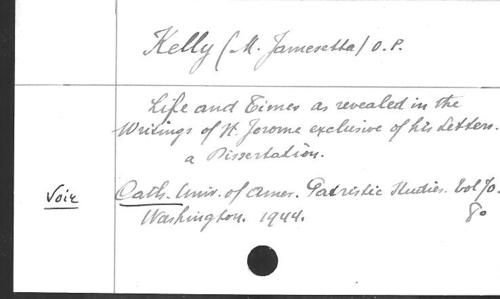 Kelly (M. Jamesetta) O.P.
Life and Times as revealed in the
Writings of St. Jerome exclusive of his Letters.
a Dissertation.
Voir Cath. Univ. of Amer. Patristic Studies. Vol 70.
Washington. 1944. 8o